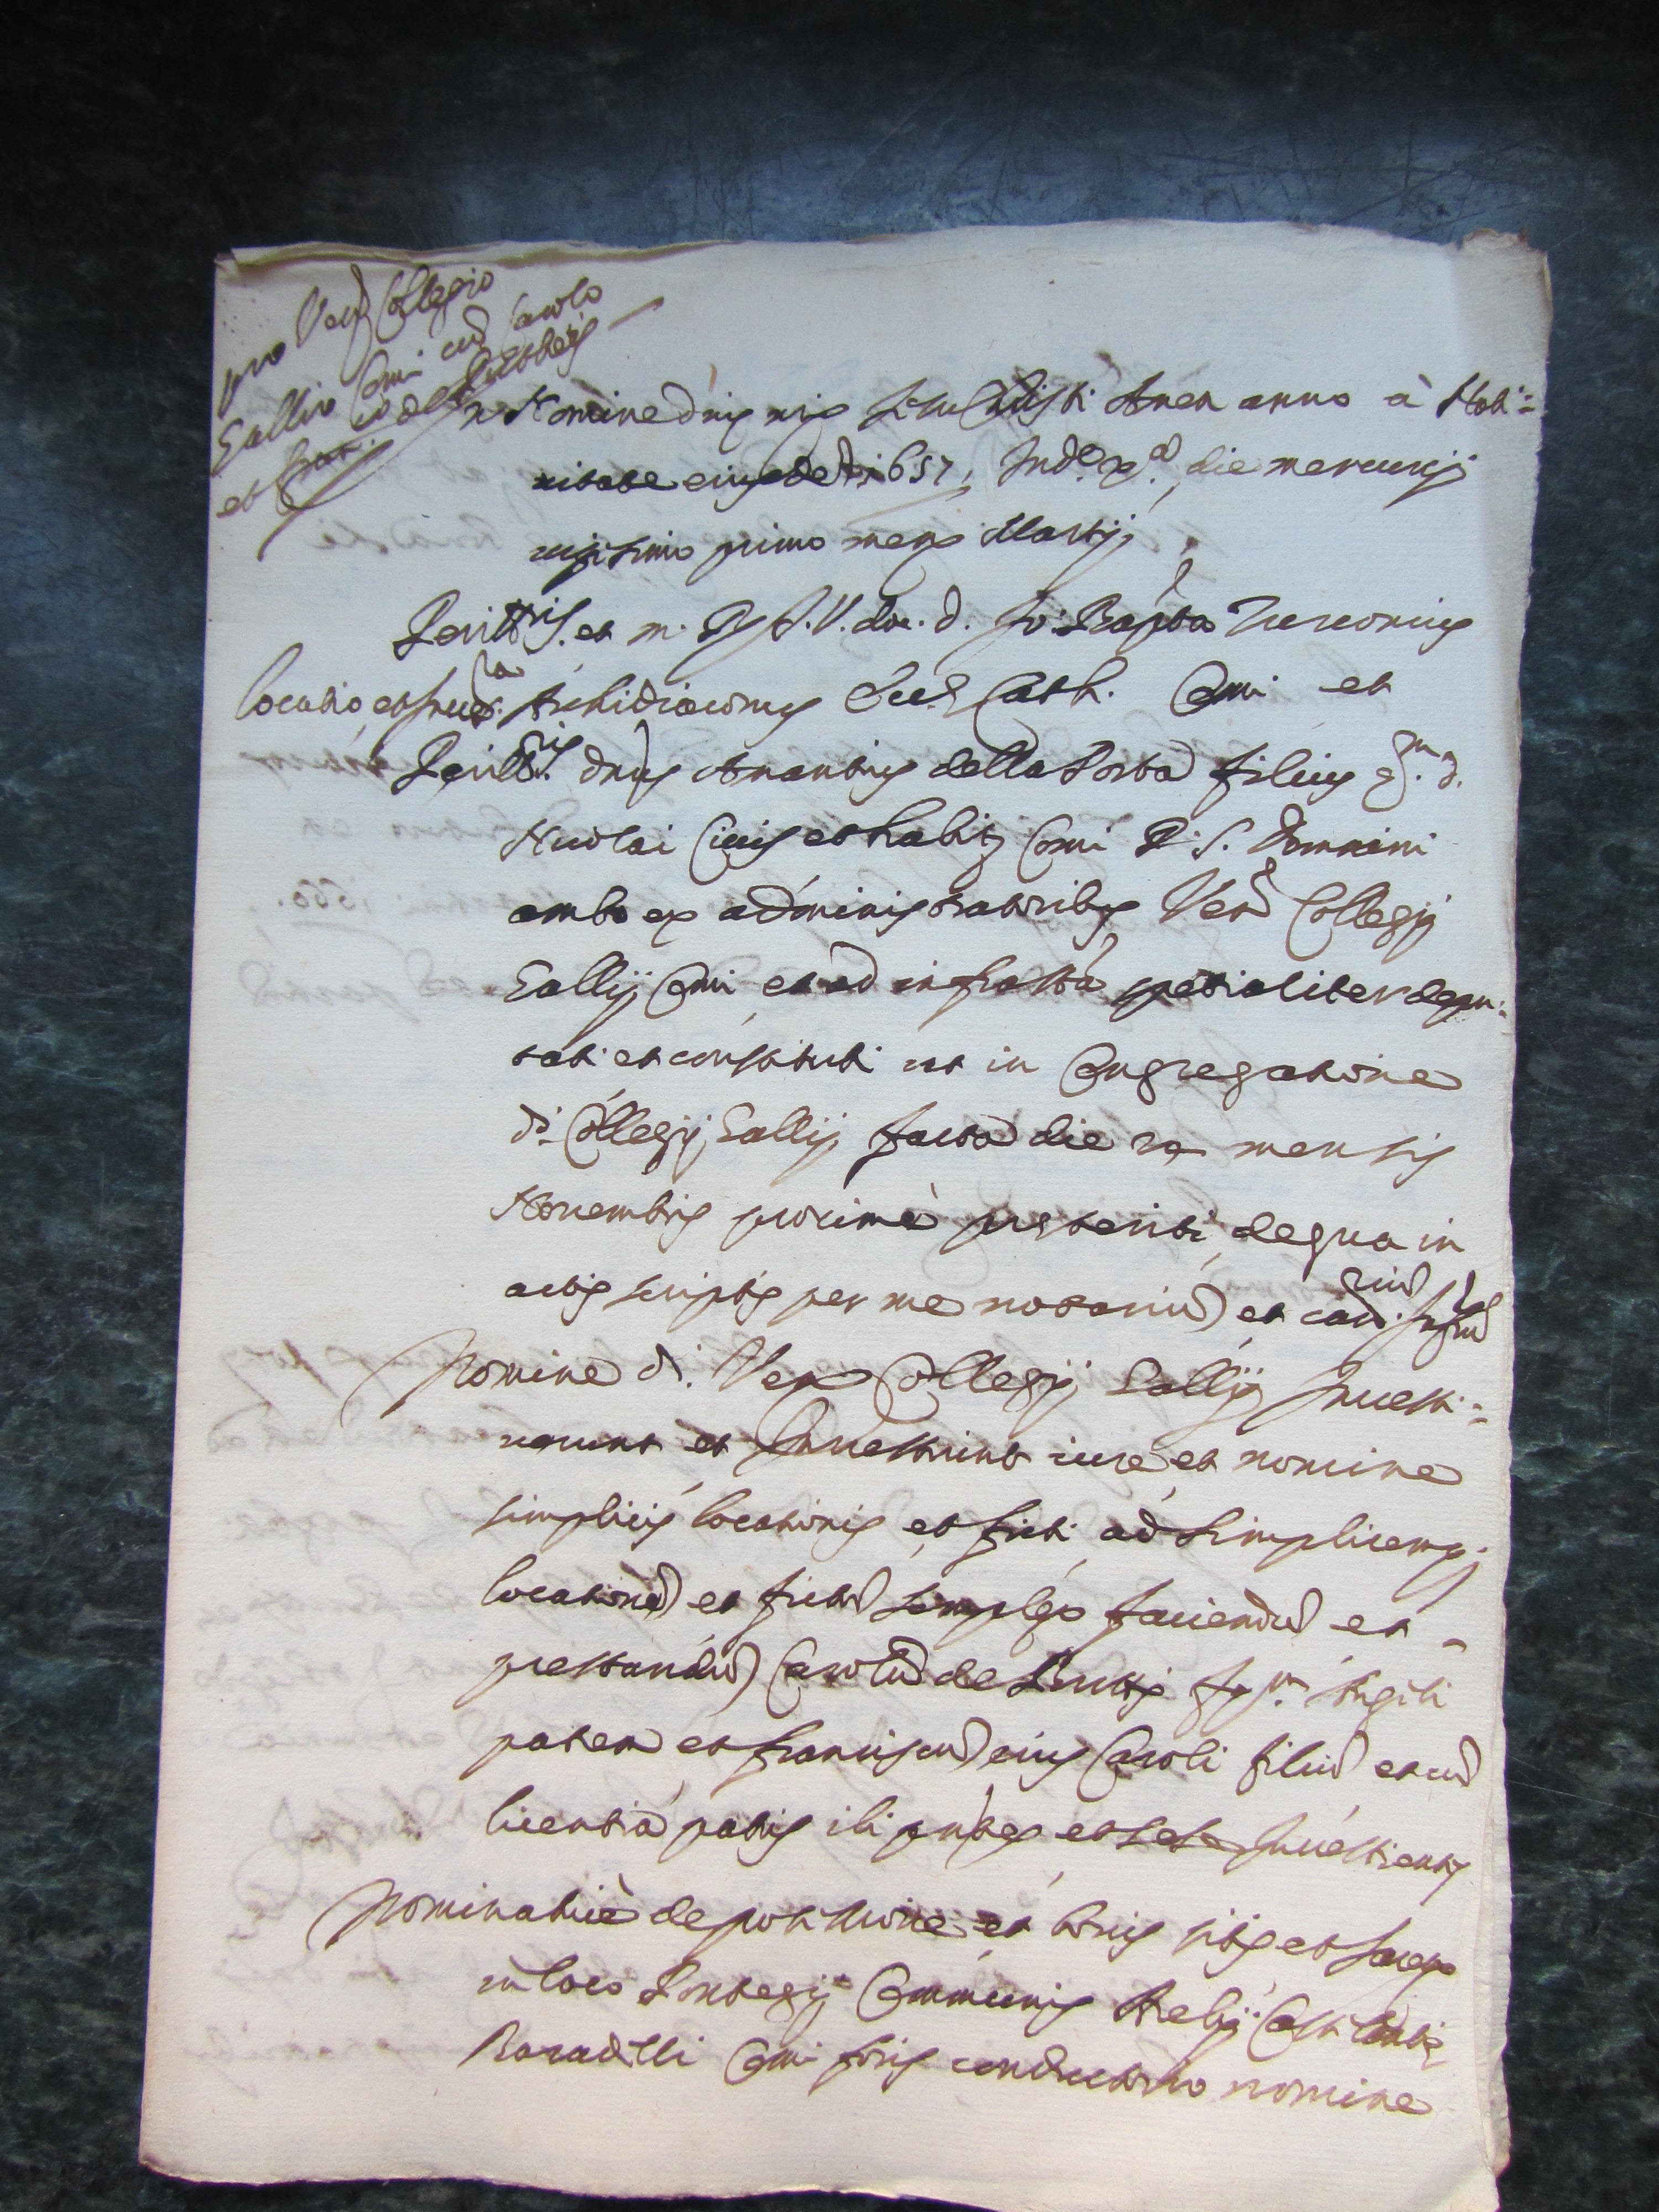 pro Ven. Collegio
Gallio Comi cum Carolo
et
In Nomine dni nri Jesu Christi Amen anno à Nati=
vitate eiusdem 1657, Ind.e X.a, die mercurij
vigesimo primo mens. Martij
Perill.ris et m. R. J.V. doc. d. Jo: Bapta Turconus
locatio et
Archidiaconus Eccl. Cath. Comi et
Perill.ris dnus Amantius della Porta filius q.m d.
Nicolai Civis et habit. Comi P. S. Domnini
ambo ex administratoribus Ven. Collegij
Gallij Comi et ad infrascta spetialiter depu:
tati et constituti ut in Congregatione
d.i Collegij Gallij facta die mensis
Novembris proximè preteriti de qua in
actis scriptis per me notarium et
Nomine d.i Ven. Collegij Gallij Investi=
verunt et Investiunt iure et nomine
simplicis locationis et ficti ad simplicem
locationem et fictum simplex faciendum et
prestandum Carolum de q.m Angeli
patrem et Franciscum eius Caroli filium et cum
licentia patris ibi pntes et sese Investientes
Nominativè de petia una et bonis sitis et iacen.
in loco Communis Castelli
Baradelli Comi foris conductorio nomine